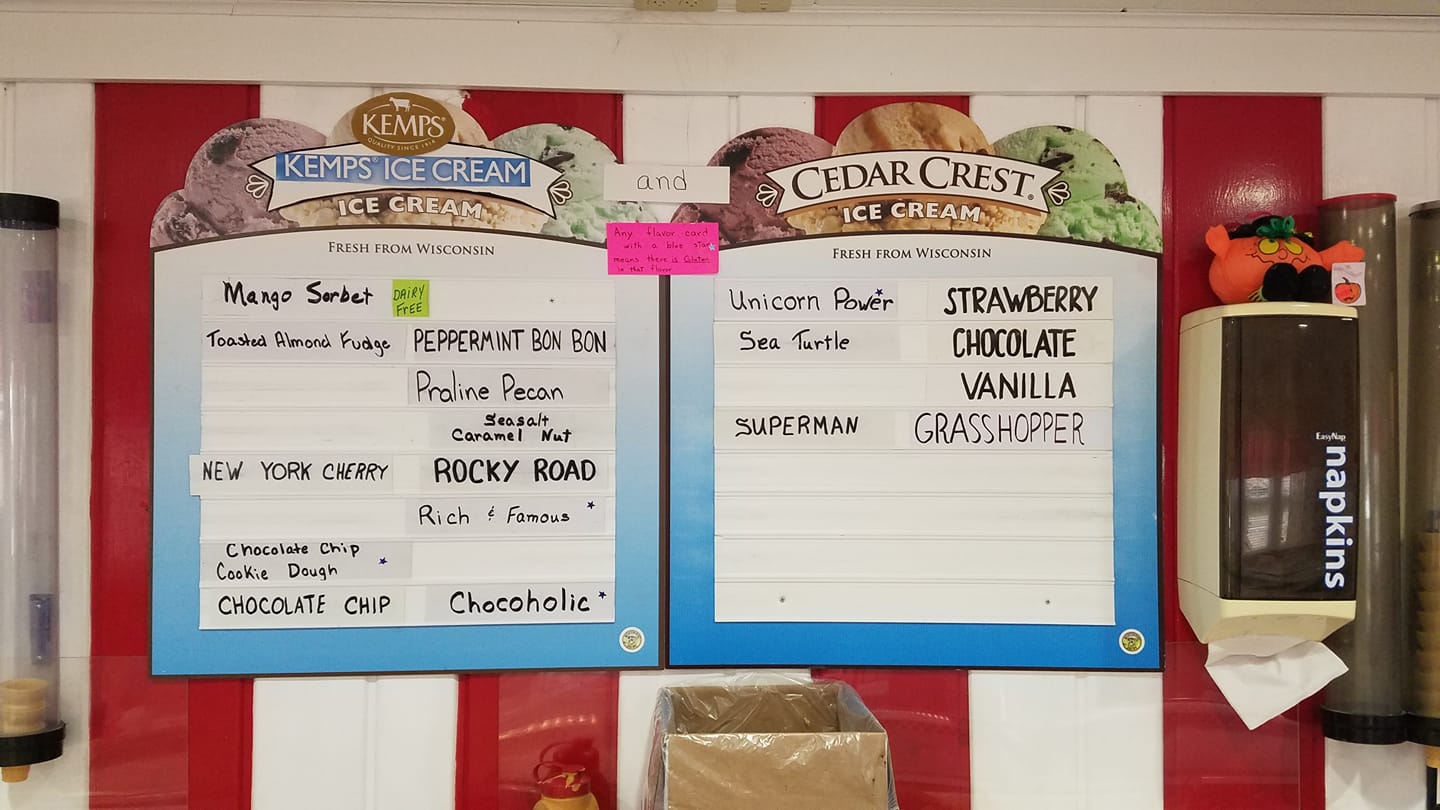 KEMPS
QUALITY SINCE 1914
KEMPS® ICE CREAM
ICE CREAM
FRESH FROM WISCONSIN
Mango Sorbet
DAIRY
FREE
Toasted Almond Fudge PEPPERMINT BON BON
Praline Pecan
Seasalt
Caramel Nut
NEW YORK CHERRY ROCKY ROAD
Rich & Famous
Chocolate Chip
Cookie Dough
CHOCOLATE CHIP Chocoholic
and
Any flavor card
with a blue star
means there is Gluten
in that flavor
CEDAR CREST®
ICE CREAM
FRESH FROM WISCONSIN
Unicorn Power STRAWBERRY
Sea Turtle CHOCOLATE
VANILLA
SUPERMAN GRASSHOPPER
EasyNap
napkins